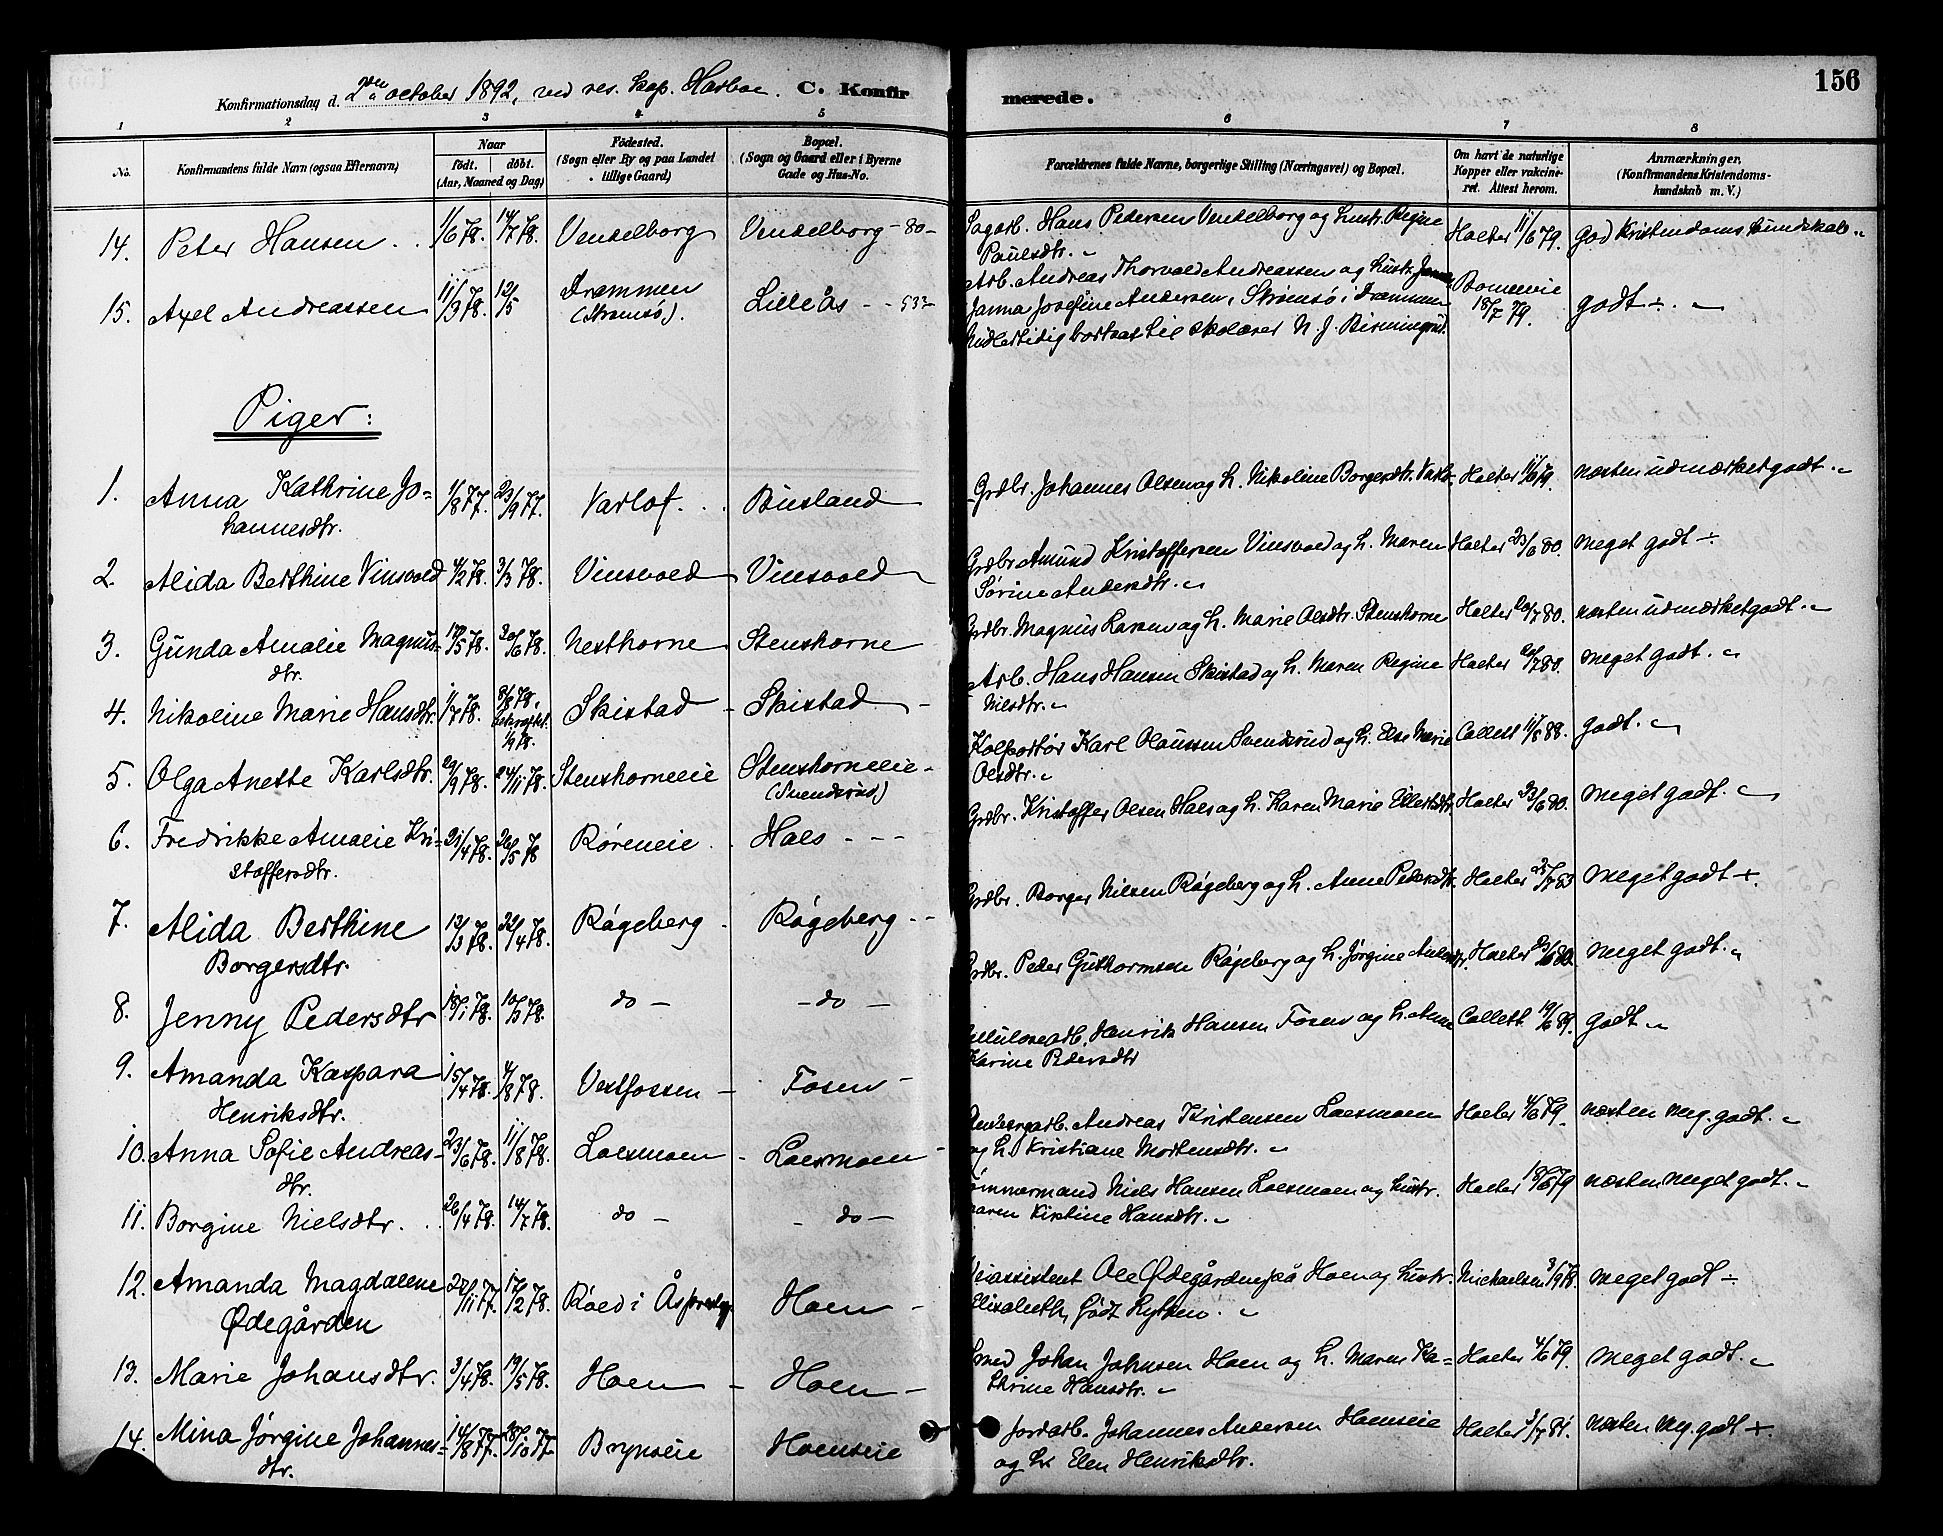 156
Konfirmationsdag d. 2den october 1892, ved res. kap. C. Konfirmerede.
1 2 3 4 5 6 7 8
No. Konfirmandens fulde Navn (ogsaa Efternavn) Naar født. døbt. (Aar, Maaned og Dag) Fødested. (Sogn eller By og paa Landet tillige Gaard) Bopæl. (Sogn og Gaard eller i Byerne Gade og Hus-No. Forældrenes fulde Navne, borgerlige Stilling (Næringsvei) og Bopæl. Om havt de naturlige Kopper eller vakcineret. Attest herom. Anmærkninger, (Konfirmandens Kristendomskundskab m. V.)
14. Peter Hansen 1/6 78. 14/7 78. Vendelborg Vendelborg - 80 - Sagarb. Hans Pedersen Vendelborg og hustr. Regine Holter 11/6 79. god Kristendomskundskab
Paulsdtr.
15. Axel Andreassen 11/3 78. 12/5 Drammen Lilleås - - 53 - Arb. Andreas Thorvald Andreassen og hustr.
(Strømsø). Janna Josefine Andersen, Strømsø, Drammen 18/7 79. godt
Midlertidig bortsat til skolærer N. J.
Piger:
1. Anna Kathrine Jo= 1/8 77. 23/9 77. Varlo Busland Grdbr. Johannes Olsen og h. Nikoline Borgersdtr. Holter 11/6 79. næsten udmærket godt
hannesdtr.
2. Alida Berthine Vinsvold 4/2 78. 3/3 78. Vinsvold Vinsvold Grdbr Amund Kristoffersen Vinsvold og h. Maren Holter 23/6 80. meget godt
Sørine Andersdtr.
3. Gunda Amalie Magnus= 17/5 78. 30/6 78. Nesthorne Stenshorne Grdbr. Magnus Larsen og h. Marie Olsdtr. Stenshorne Holter 20/7 80. næsten udmærket godt
dtr.
4. Nikoline Marie Hansdtr. 1/7 78. 8/8 78, 1/9 78. Skistad - Skistad - Arb. Hans Hansen Skistad og h. Maren Regine Holter 20/7 80. meget godt.
Nilsdtr.
5. Olga Anette Karlsdtr. 29/9 78. 24/11 78. Stenshorneeie Stenshorneeie Kolportør Karl Olaussen Svendsrud og h. Else Marie Collett 11/8 88. godt.
(Svendsrud) Olsdtr.
6. Fredrikke Amalie Kri= 21/4 78. 26/5 78 Røreneie Hals - - - Grdbr. Kristoffer Olsen Hals og h. Karen Marie Ellertsdtr. Holter 23/6 80. meget godt.
stoffersdtr.
7. Alida Berthine 13/3 78. 22/4 78. Røgeberg Røgeberg - - Grdbr. Borger Nilsen Røgeberg og h. Anne Pedersdtr. Holter 25/7 83 meget godt
Borgersdtr.
8. Jenny Pedersdtr 18/1 78. 10/3 78. do - - do - Grdbr. Peder Guttormsen Røgeberg og h. Jørgine Holter 80. meget godt.
9. Amanda Kaspara 15/4 78. 4/8 78. Vestfossen - Fosen - Cellulosearb. Henrik Hansen Fosen og h. Anne Collett. 19/6 89. godt
Henriksdtr. Karine Pedersdtr
10. Anna Sofie Andreas= 23/6 78. 11/8 78. Loesmoen - Loesmoen Andreas Kristensen Loesmoen Holter 4/6 79. næsten meg. godt.
dtr. og h. Kristiane Mortensdtr.
11. Borgine Nielsdtr. 26/4 78. 14/7 78. do - - do - Tømmermand Niels Hansen Loesmoen og hustr. Holter 18/6 79 næsten meget godt.
Karen Kirstine Hansdtr.
12. Amanda Magdalene 27/11 77. 17/2 78. Røed i Hoen - Veiassistent Ole Ødegården på Hoen og hustr. Michaelsen 3/9 78. meget godt
Ødegården Elisabeth, født
13. Marie Johansdtr. 3/4 78. 19/5 78. Hoen - Hoen - Smed Johan Johnsen Hoen og h. Maren Ka= Holter 4/6 79. meget godt.
thrine Hansdtr.
14. Mina Jørgine Johannes= 14/8 77. 28/10 77. Brynseie Hoenseie Jordarb. Johannes Andersen Hoenseie Holter 3/7 81. næsten meg. godt
dtr. og h. Elen Henriksdtr.